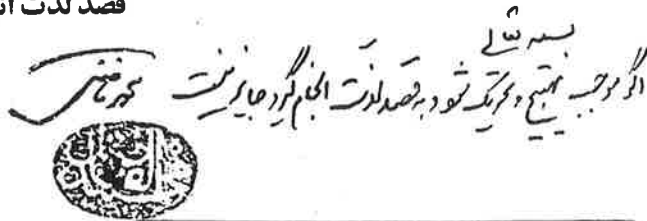 قصد لذت ا
بسمه تعالی
اگر موجب تهییج و تحریک شود و به قصد لذت انجام گیرد جایز نیست